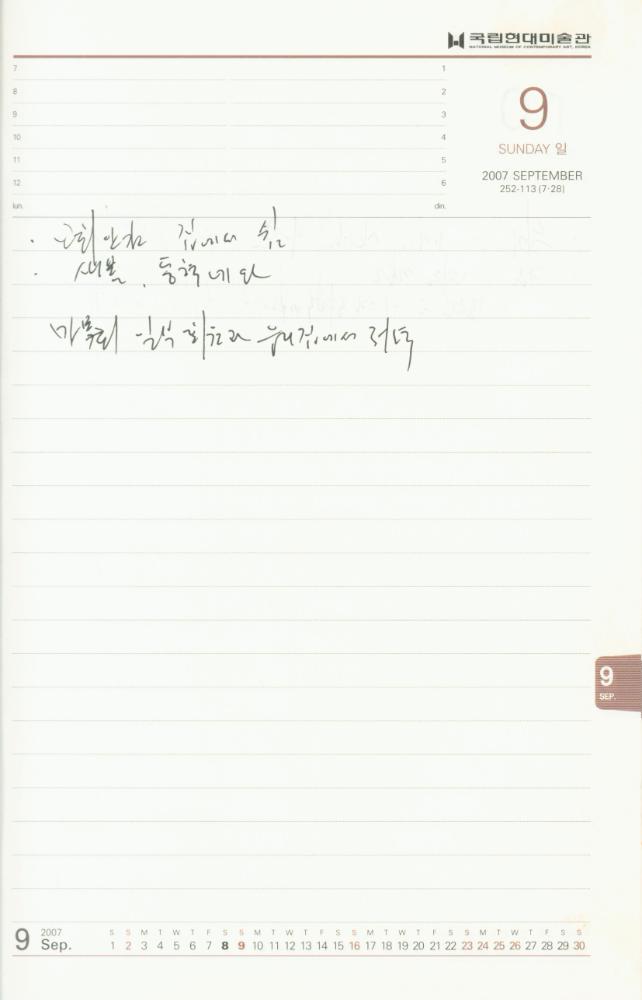 국립현대미술관
NATIONAL MUSEUM OF CONTEMPORARY ART, KOREA
7 1
8 2
9 3
10 4
11 5
12 6
lun. din.
9
SUNDAY 일
2007 SEPTEMBER
252-113 (7·28)
· 집에서 쉼
· 새볼, 동학네 와
우리집에서 저녁
9
SEP.
9 2007 Sep.
S S M T W T F S S M T W T F S S M T W T F S S M T W T F S S
1 2 3 4 5 6 7 8 9 10 11 12 13 14 15 16 17 18 19 20 21 22 23 24 25 26 27 28 29 30